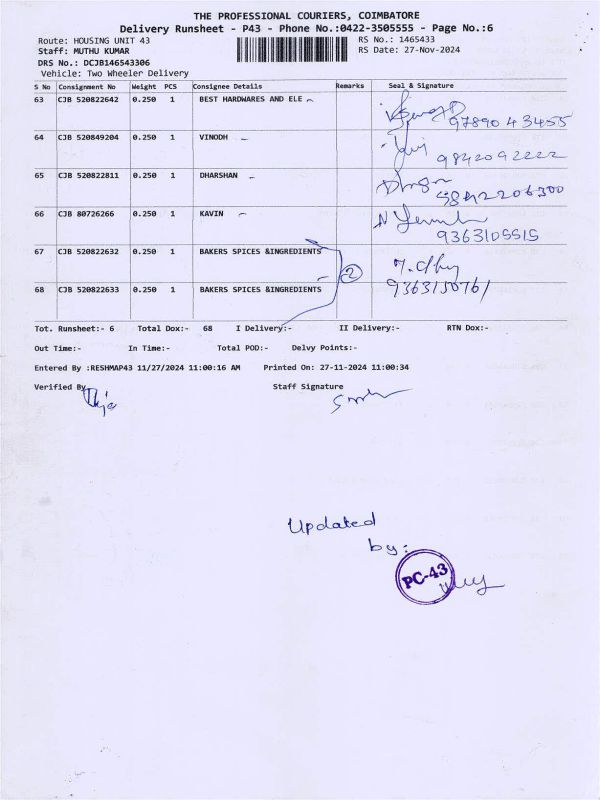 THE PROFESSIONAL COURIERS, COIMBATORE
Delivery Runsheet - P43 - Phone No.:0422-3505555 - Page No.:6
Route: HOUSING UNIT 43 RS No.: 1465433
Staff: MUTHU KUMAR RS Date: 27-Nov-2024
DRS No.: DCJB146543306
Vehicle: Two Wheeler Delivery
S No Consignment No Weight PCS Consignee Details Remarks Seal & Signature
63 CJB 520822642 0.250 1 BEST HARDWARES AND ELE
9789043455
64 CJB 520849204 0.250 1 VINODH
9842092222
65 CJB 520822811 0.250 1 DHARSHAN
9842206300
66 CJB 80726266 0.250 1 KAVIN
9363105515
67 CJB 520822632 0.250 1 BAKERS SPICES &INGREDIENTS
2
68 CJB 520822633 0.250 1 BAKERS SPICES &INGREDIENTS 9363150761
Tot. Runsheet:- 6 Total Dox:- 68 I Delivery:- II Delivery:- RTN Dox:-
Out Time:- In Time:- Total POD:- Delvy Points:-
Entered By :RESHMAP43 11/27/2024 11:00:16 AM Printed On: 27-11-2024 11:00:34
Verified By Staff Signature
Updated
by:
PC-43